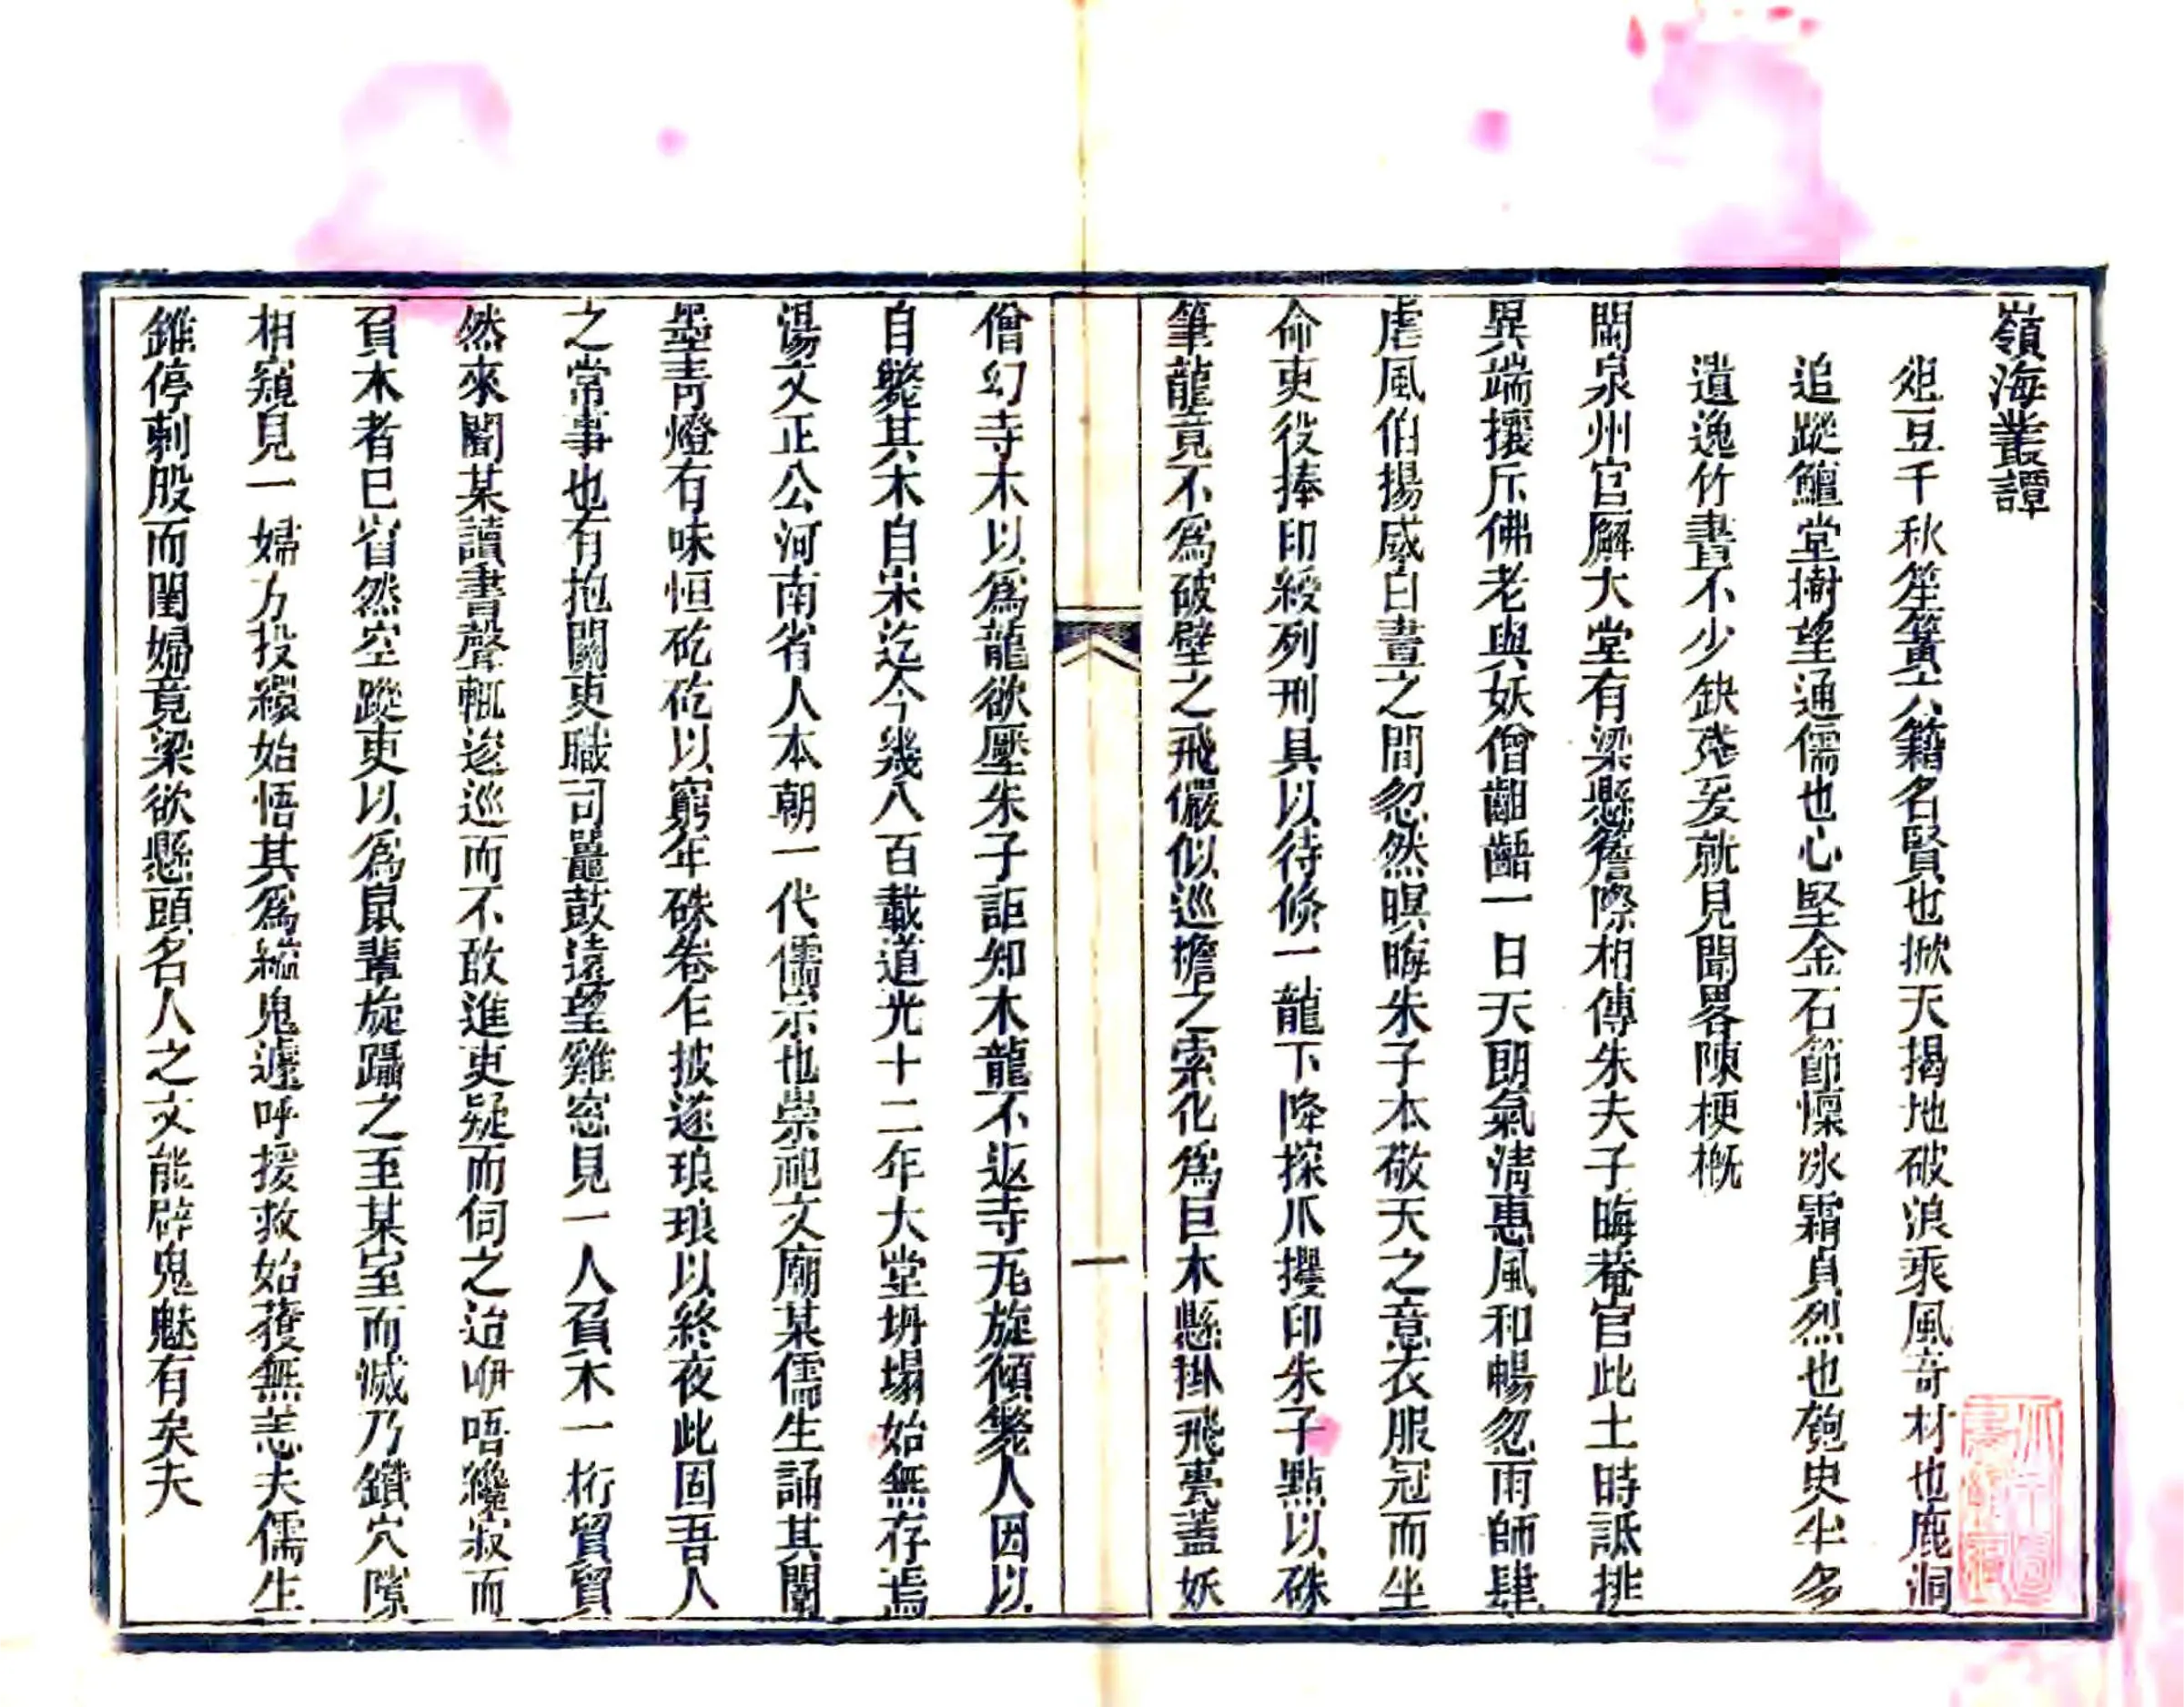 嶺海叢譚
俎豆千秋笙簧六籍名賢也掀天揭地破浪乘風奇材也鹿洞
追蹤鱣堂樹望通儒也心堅金石節懍冰霜貞烈也匏史半多
遺逸竹書不少缺殘爰就見聞畧陳梗概
閩泉州官廨大堂有梁懸簷際相傳朱夫子晦菴官此土時詆排
異端攘斥佛老與妖僧齟齬一日天朗氣淸惠風和暢忽雨師肆
虐風伯揚威白晝之間忽然暝晦朱子本敬天之意衣服冠而坐
命吏役捧印綬列刑具以待倏一龍下降探爪攫印朱子點以硃
筆龍竟不爲破壁之飛儼似巡檐之索化爲巨木懸掛飛甍蓋妖
僧幻寺木以爲龍欲壓朱子詎知木龍不返寺旋傾斃人因以
自斃其木自宋迄今幾八百載道光十二年大堂坍塌始無存焉
湯文正公河南省人本朝一代儒宗也崇祀文廟某儒生誦其闈
墨靑燈有味恒矻矻以窮年硃卷乍披遂琅琅以終夜此固吾人
之常事也有抱關吏職司鼉鼓遠望雞窓見一人負木一桁貿貿
然來聞某讀書聲輒逡巡而不敢進吏疑而伺之迨咿唔纔寂而
負木者已窅然空蹤吏以爲鼠輩旋躡之至某室而滅乃鑽穴隙
相窺見一婦方投繯始悟其爲縊鬼遽呼援救始獲無恙夫儒生
錐停刺股而閨婦竟梁欲懸頭名人之文能辟鬼魅有矣夫
一